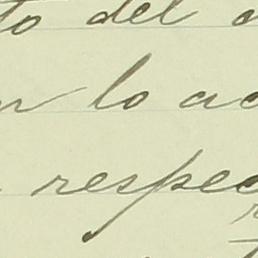 to del
n lo ac
respec